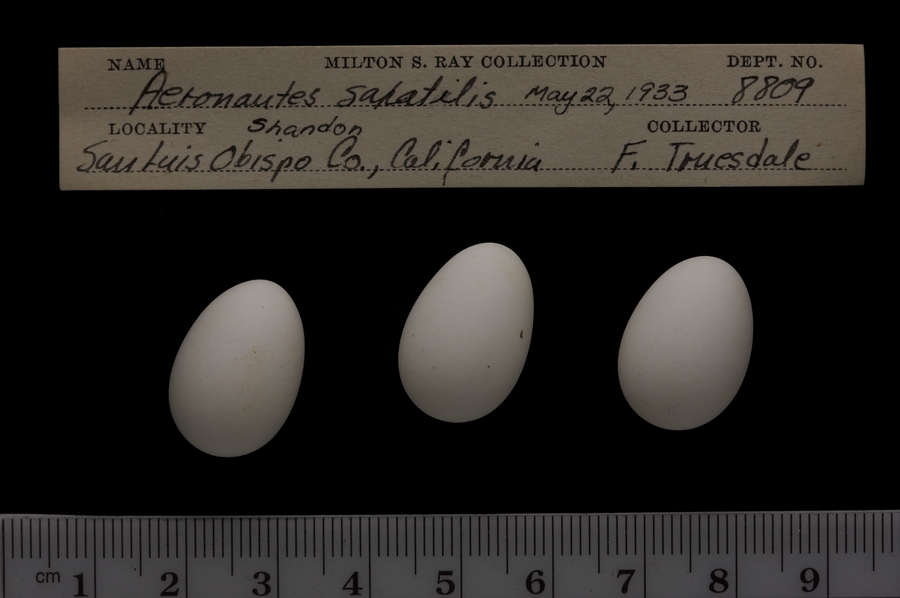 NAME MILTON S. RAY COLLECTION DEPT. NO.
Aeronautes saxatilis May 22, 1933 8809
LOCALITY Shandon COLLECTOR
San Luis Obispo Co., California F. Truesdale
cm 1 2 3 4 5 6 7 8 9